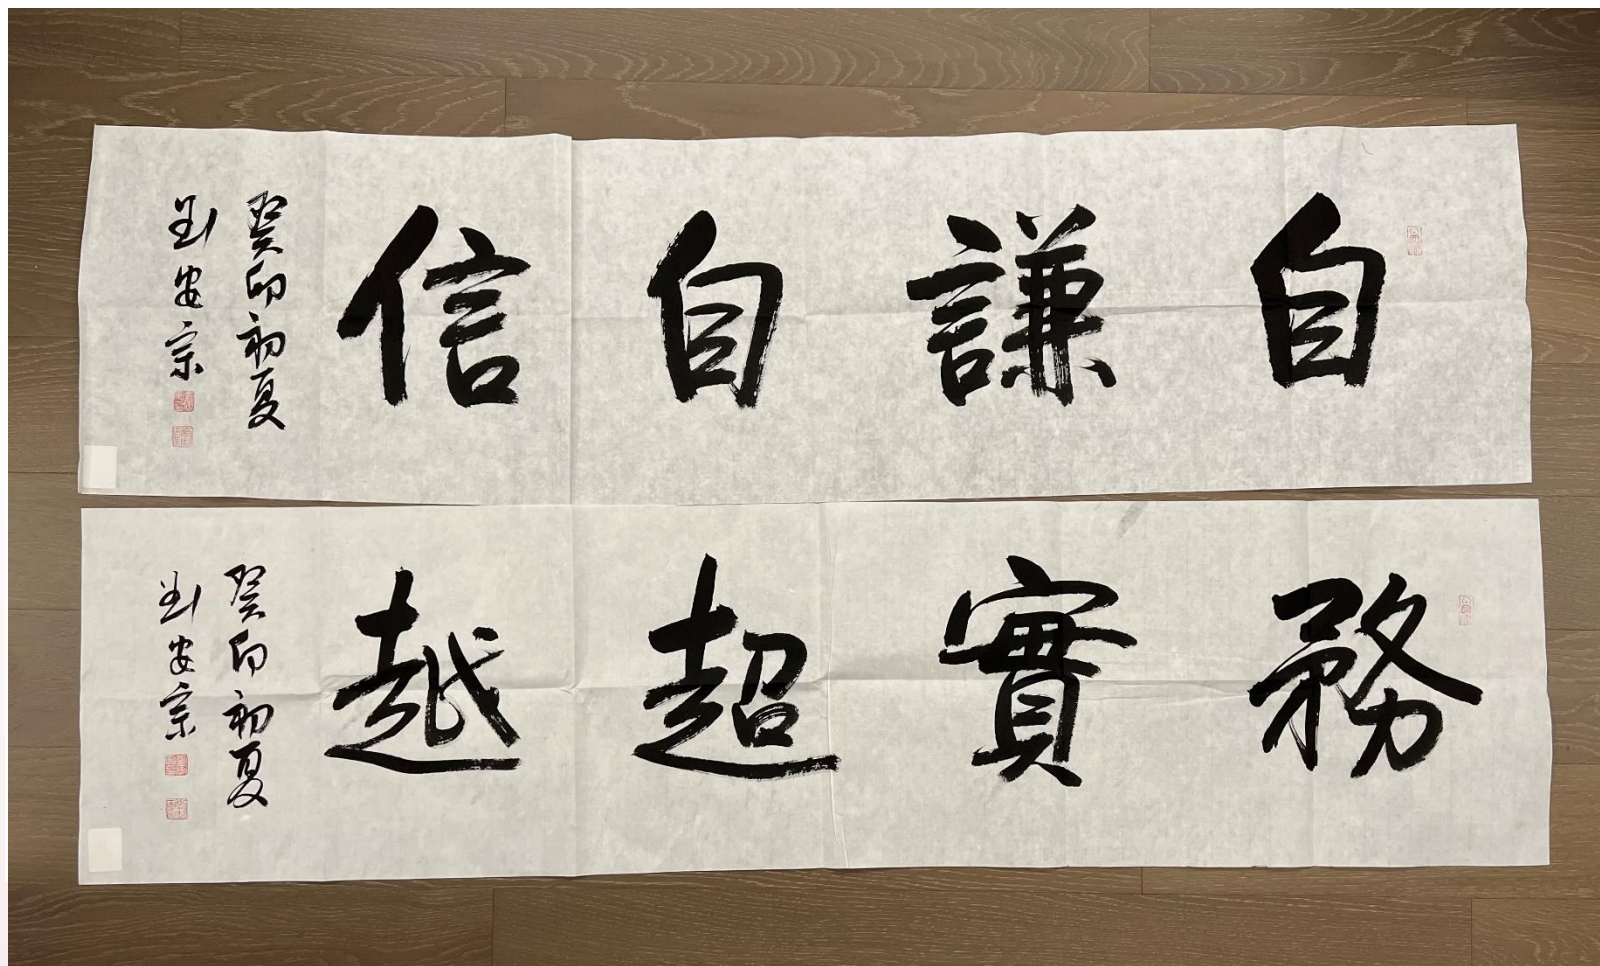 自謙自信
癸卯初夏
刘安宗
務實超越
癸卯初夏
刘安宗